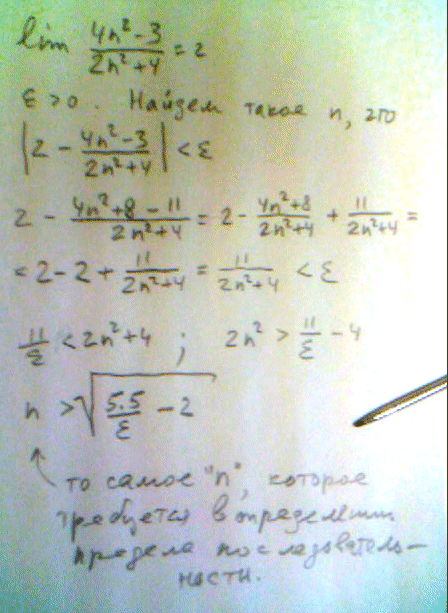 lim (4n²-3)/(2n²+4) = 2
ε > 0. Найдем такое n, что
|2 - (4n²-3)/(2n²+4)| < ε
2 - (4n²+8-11)/(2n²+4) = 2 - (4n²+8)/(2n²+4) + 11/(2n²+4) =
= 2-2+ 11/(2n²+4) = 11/(2n²+4) < ε
11/ε < 2n²+4 ; 2n² > 11/ε - 4
n > √(5.5/ε - 2)
то самое "n", которое
требуется в определении
предела последователь-
ности.